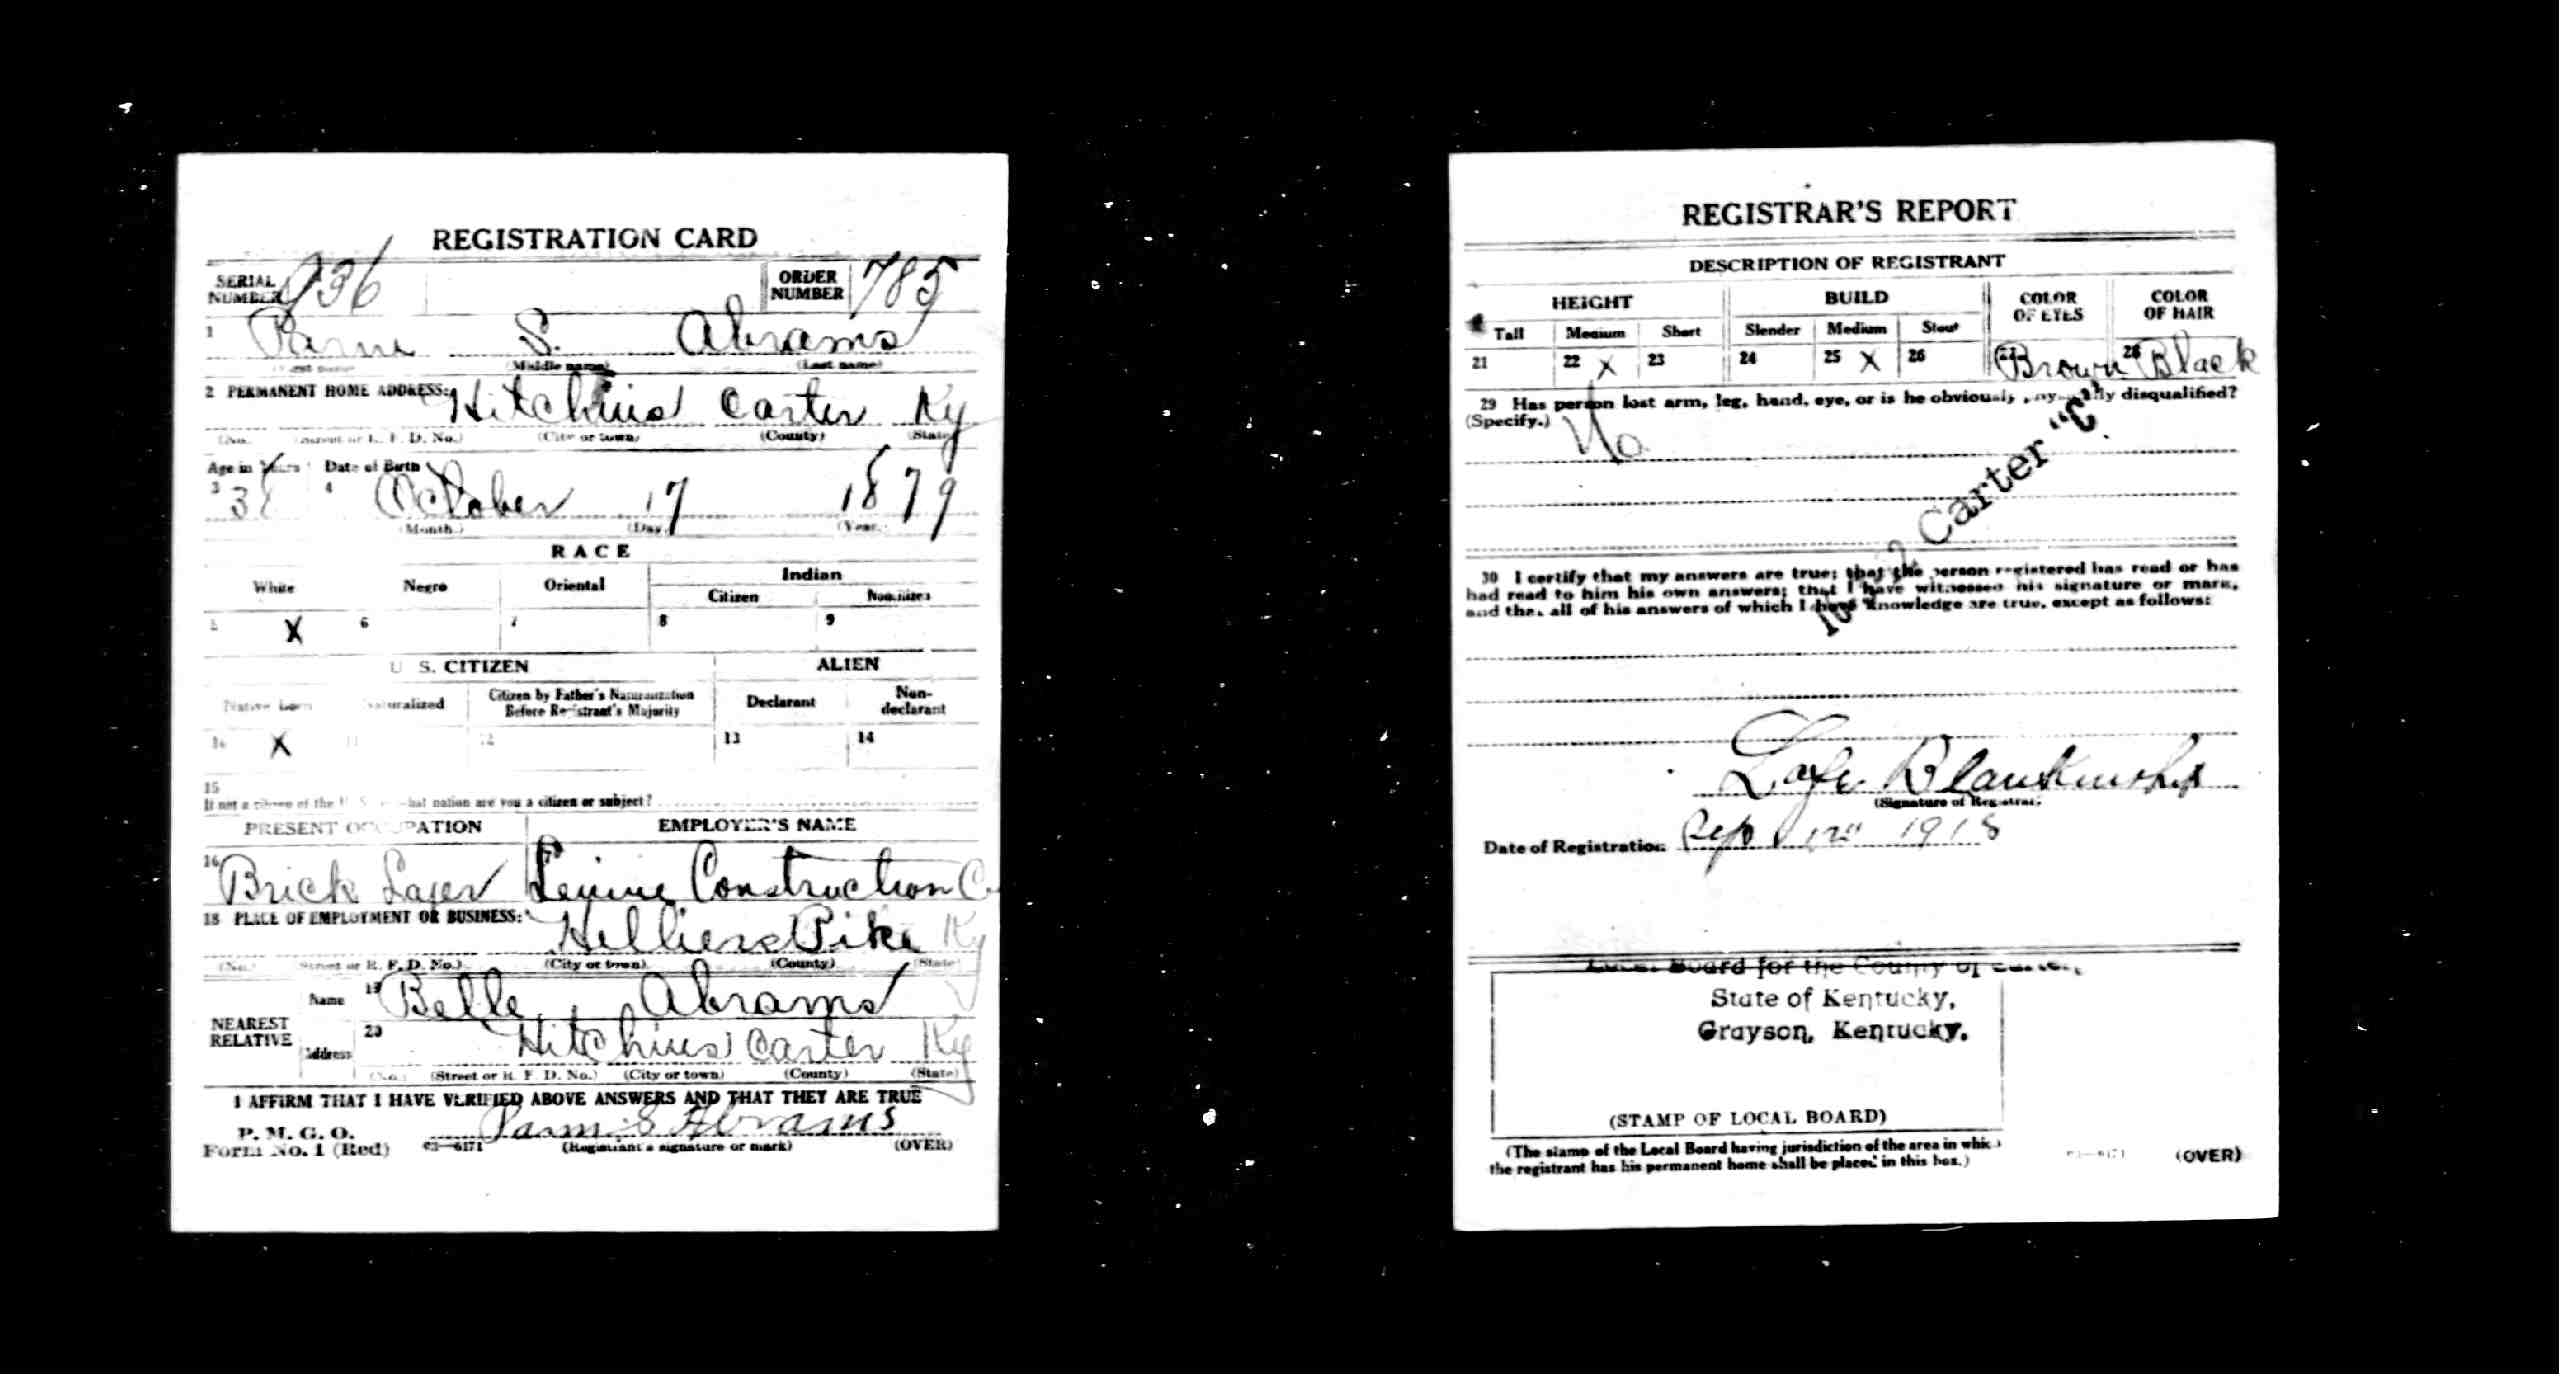 REGISTRATION CARD
SERIAL NUMBER 936 ORDER NUMBER 785
1 S. Abrams
(Middle name) (Last name)
2 PERMANENT HOME ADDRESS: Hitchins Carter Ky
(No.) (Street or R. F. D. No.) (City or town) (County) (State)
Age in Years Date of Birth
3 4 October 17 1879
(Month.) (Day.) (Year.)
RACE
White Negro Oriental Indian
Citizen Noncitizen
5 X 6 7 8 9
U. S. CITIZEN ALIEN
Native Born Naturalized Citizen by Father's Naturalization Before Registrant's Majority Declarant Non-declarant
10 X 11 12 13 14
15
If not a citizen of the U. S., of what nation are you a citizen or subject?
PRESENT OCCUPATION EMPLOYER'S NAME
16 Brick Layer 17 Construction Co
18 PLACE OF EMPLOYMENT OR BUSINESS: Pike Ky
(No.) (Street or R. F. D. No.) (City or town) (County) (State)
NEAREST RELATIVE
Name 19 Belle Abrams
Address 20 Hitchins Carter Ky
(No.) (Street or R. F. D. No.) (City or town) (County) (State)
I AFFIRM THAT I HAVE VERIFIED ABOVE ANSWERS AND THAT THEY ARE TRUE
P. M. G. O.
Form No. 1 (Red) 03—6171 S Abrams
(Registrant's signature or mark) (OVER)
REGISTRAR'S REPORT
DESCRIPTION OF REGISTRANT
HEIGHT BUILD COLOR OF EYES COLOR OF HAIR
Tall Medium Short Slender Medium Stout
21 22 X 23 24 25 X 26 27 Brown 28 Black
29 Has person lost arm, leg, hand, eye, or is he obviously physically disqualified?
(Specify.) No
Carter "C"
30 I certify that my answers are true; that the person registered has read or has
had read to him his own answers; that I have witnessed his signature or mark,
and that all of his answers of which I have knowledge are true, except as follows:
Lafe Blankenship
(Signature of Registrar)
Date of Registration Sep 12" 1918
Local Board for the County of Carter,
State of Kentucky,
Grayson, Kentucky.
(STAMP OF LOCAL BOARD)
(The stamp of the Local Board having jurisdiction of the area in which
the registrant has his permanent home shall be placed in this box.)
03—6171 (OVER)